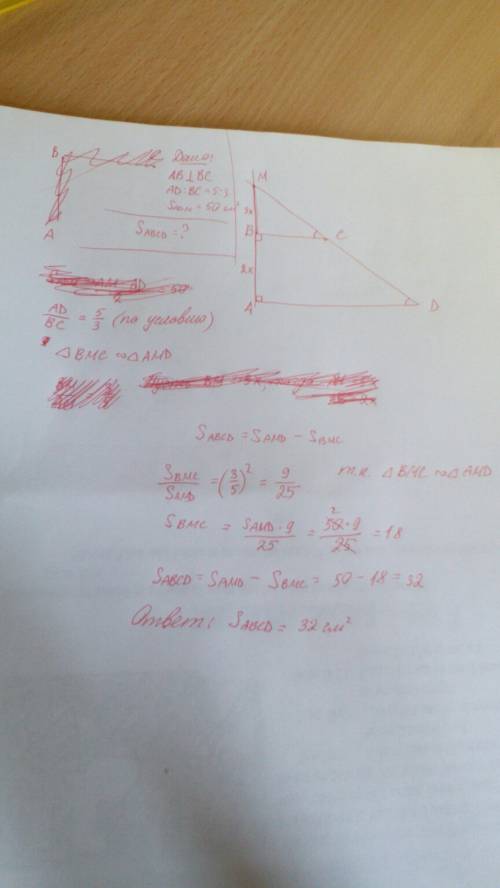 B
Дано:
AB⊥BC
AD:BC=5:3
S_ADM = 50 см²
S_ABCD = ?
A
M
3x
B
C
2x
A
D
AD/BC = 5/3 (по условию)
△BMC ∾ △AMD
S_ABCD = S_AMD − S_BMC
S_BMC/S_AMD = (3/5)² = 9/25 т.к. △BMC ∾ △AMD
S_BMC = S_AMD · 9/25 = 50 · 9/25 = 18
S_ABCD = S_AMD − S_BMC = 50 − 18 = 32
Ответ: S_ABCD = 32 см²